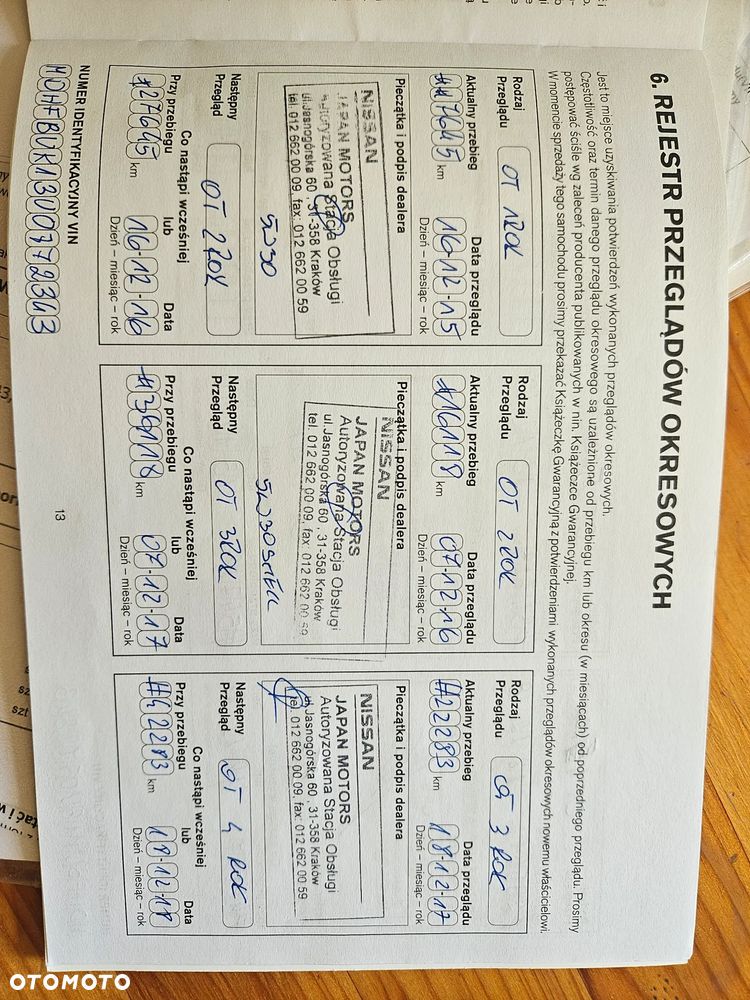 6. REJESTR PRZEGLĄDÓW OKRESOWYCH
Jest to miejsce uzyskiwania potwierdzeń wykonanych przeglądów okresowych.
Częstotliwość oraz termin danego przeglądu okresowego są uzależnione od przebiegu km lub okresu (w miesiącach) od poprzedniego przeglądu. Prosimy
postępować ściśle wg zaleceń producenta publikowanych w nin. Książeczce Gwarancyjnej.
W momencie sprzedaży tego samochodu prosimy przekazać Książeczkę Gwarancyjną z potwierdzeniami wykonanych przeglądów okresowych nowemu właścicielowi.
Rodzaj
Przeglądu
OT 1 ROK
Aktualny przebieg
Data przeglądu
km
16-12-15
Dzień – miesiąc – rok
Pieczątka i podpis dealera
NISSAN
JAPAN MOTORS
Autoryzowana Stacja Obsługi
ul.Jasnogórska 60 , 31-358 Kraków
tel. 012 662 00 09, fax: 012 662 00 59
5W30
Następny
Przegląd
OT 2 ROK
Co nastąpi wcześniej
Przy przebiegu
lub
Data
#27645
km
16-12-16
Dzień – miesiąc – rok
Rodzaj
Przeglądu
OT 2 ROK
Aktualny przebieg
Data przeglądu
#16118
km
07-12-16
Dzień – miesiąc – rok
Pieczątka i podpis dealera
NISSAN
JAPAN MOTORS
Autoryzowana Stacja Obsługi
ul.Jasnogórska 60 , 31-358 Kraków
tel. 012 662 00 09, fax: 012 662 00 59
5W30 SHELL
Następny
Przegląd
OT 3 ROK
Co nastąpi wcześniej
Przy przebiegu
lub
Data
#36118
km
07-12-17
Dzień – miesiąc – rok
Rodzaj
Przeglądu
OT 3 ROK
Aktualny przebieg
Data przeglądu
#22283
km
18-12-17
Dzień – miesiąc – rok
Pieczątka i podpis dealera
NISSAN
JAPAN MOTORS
Autoryzowana Stacja Obsługi
ul.Jasnogórska 60 , 31-358 Kraków
tel. 012 662 00 09, fax: 012 662 00 59
Następny
Przegląd
OT 4 ROK
Co nastąpi wcześniej
Przy przebiegu
lub
Data
#42283
km
18-12-18
Dzień – miesiąc – rok
NUMER IDENTYFIKACYJNY VIN
13
OTOMOTO